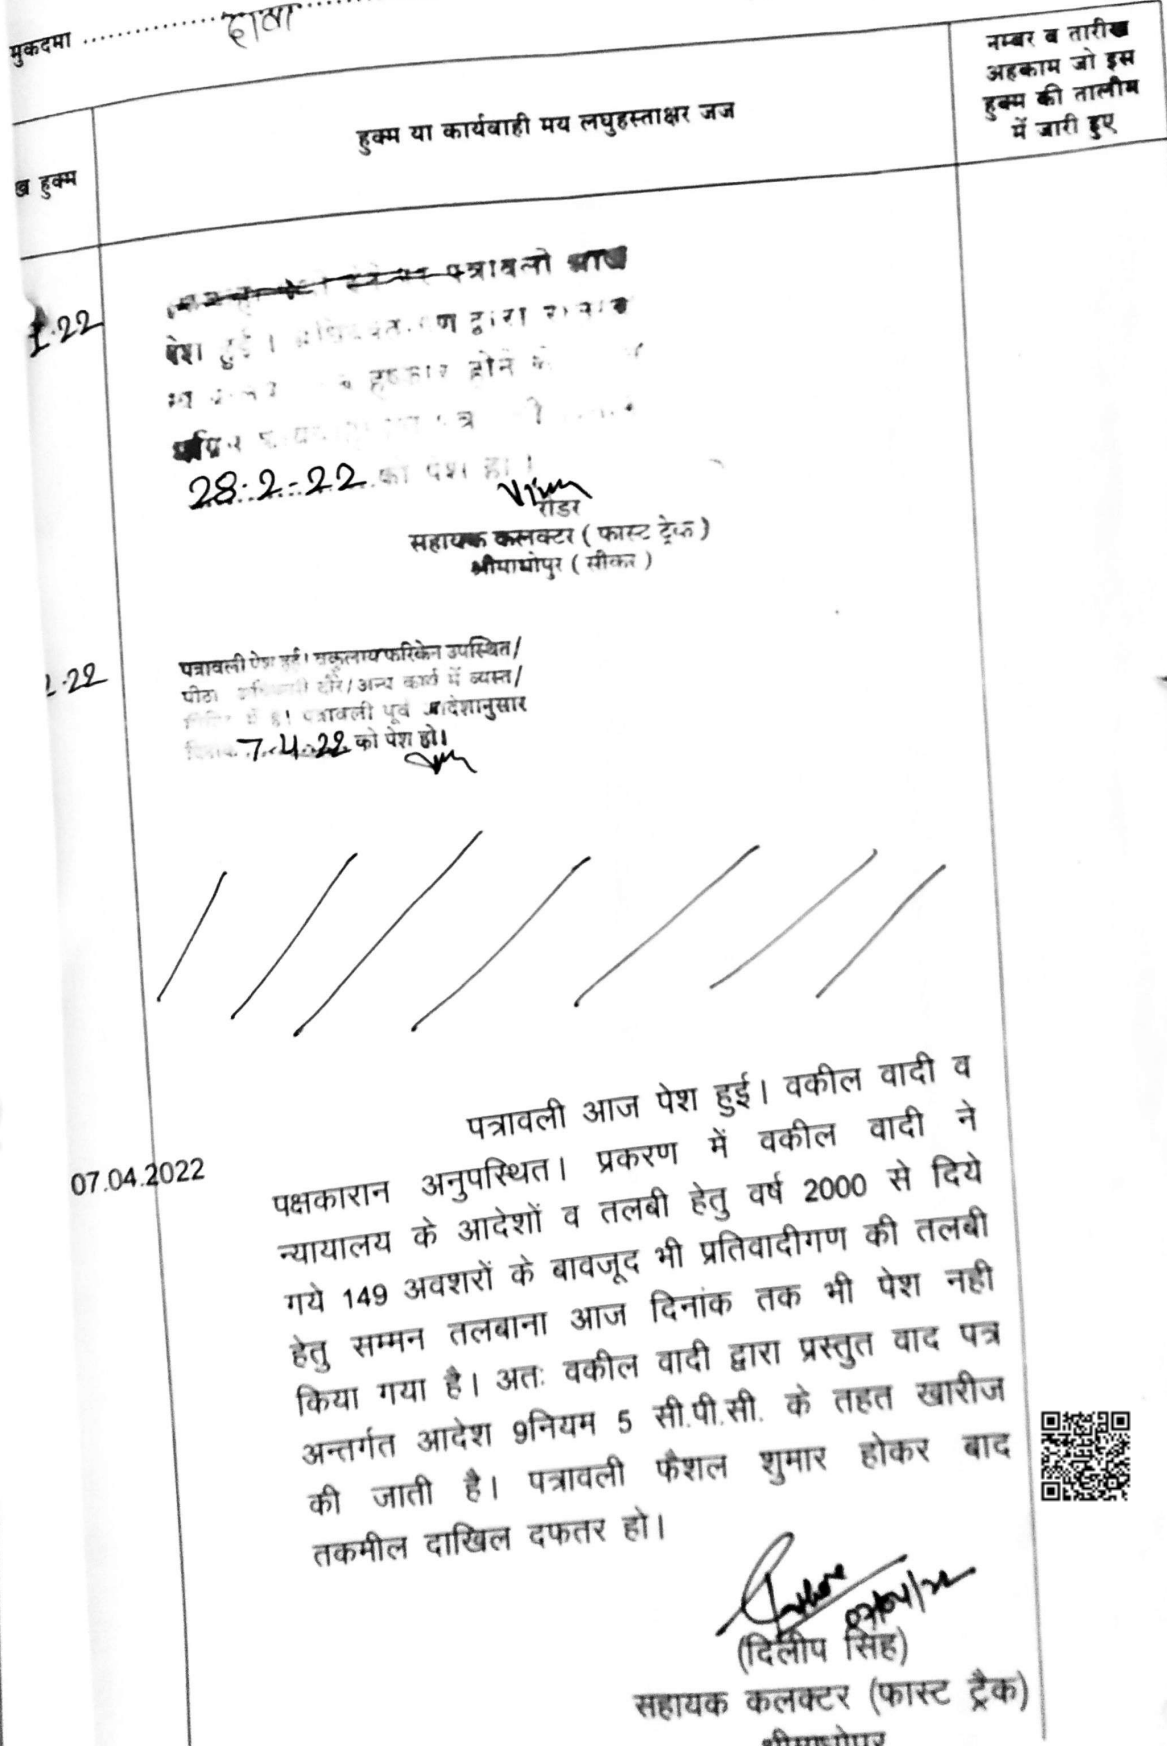 मुकदमा .............. दावा
हुक्म या कार्यवाही मय लघुहस्ताक्षर जज
नम्बर व तारीख
अहकाम जो इस
हुक्म की तालीम
में जारी हुए
ख हुक्म
पत्रावली आज
1.22
पेश हुई । द्वारा
होने
28.2.22 को पेश हो ।
रीडर
सहायक कलक्टर ( फास्ट ट्रेक )
श्रीमाधोपुर ( सीकर )
2.22
पत्रावली पेश हुई। वकुलाय फरिकेन उपस्थित/
दौरे/अन्य कार्य में व्यस्त/
में है। पत्रावली पूर्व आदेशानुसार
दिनांक 7.4.22 को पेश हो।
पत्रावली आज पेश हुई। वकील वादी व
07.04.2022
पक्षकारान अनुपस्थित। प्रकरण में वकील वादी ने
न्यायालय के आदेशों व तलबी हेतु वर्ष 2000 से दिये
गये 149 अवशरों के बावजूद भी प्रतिवादीगण की तलबी
हेतु सम्मन तलबाना आज दिनांक तक भी पेश नही
किया गया है। अतः वकील वादी द्वारा प्रस्तुत वाद पत्र
अन्तर्गत आदेश 9नियम 5 सी.पी.सी. के तहत खारीज
की जाती है। पत्रावली फैशल शुमार होकर बाद
तकमील दाखिल दफतर हो।
07/04/22
(दिलीप सिंह)
सहायक कलक्टर (फास्ट ट्रैक)
श्रीमाधोपुर